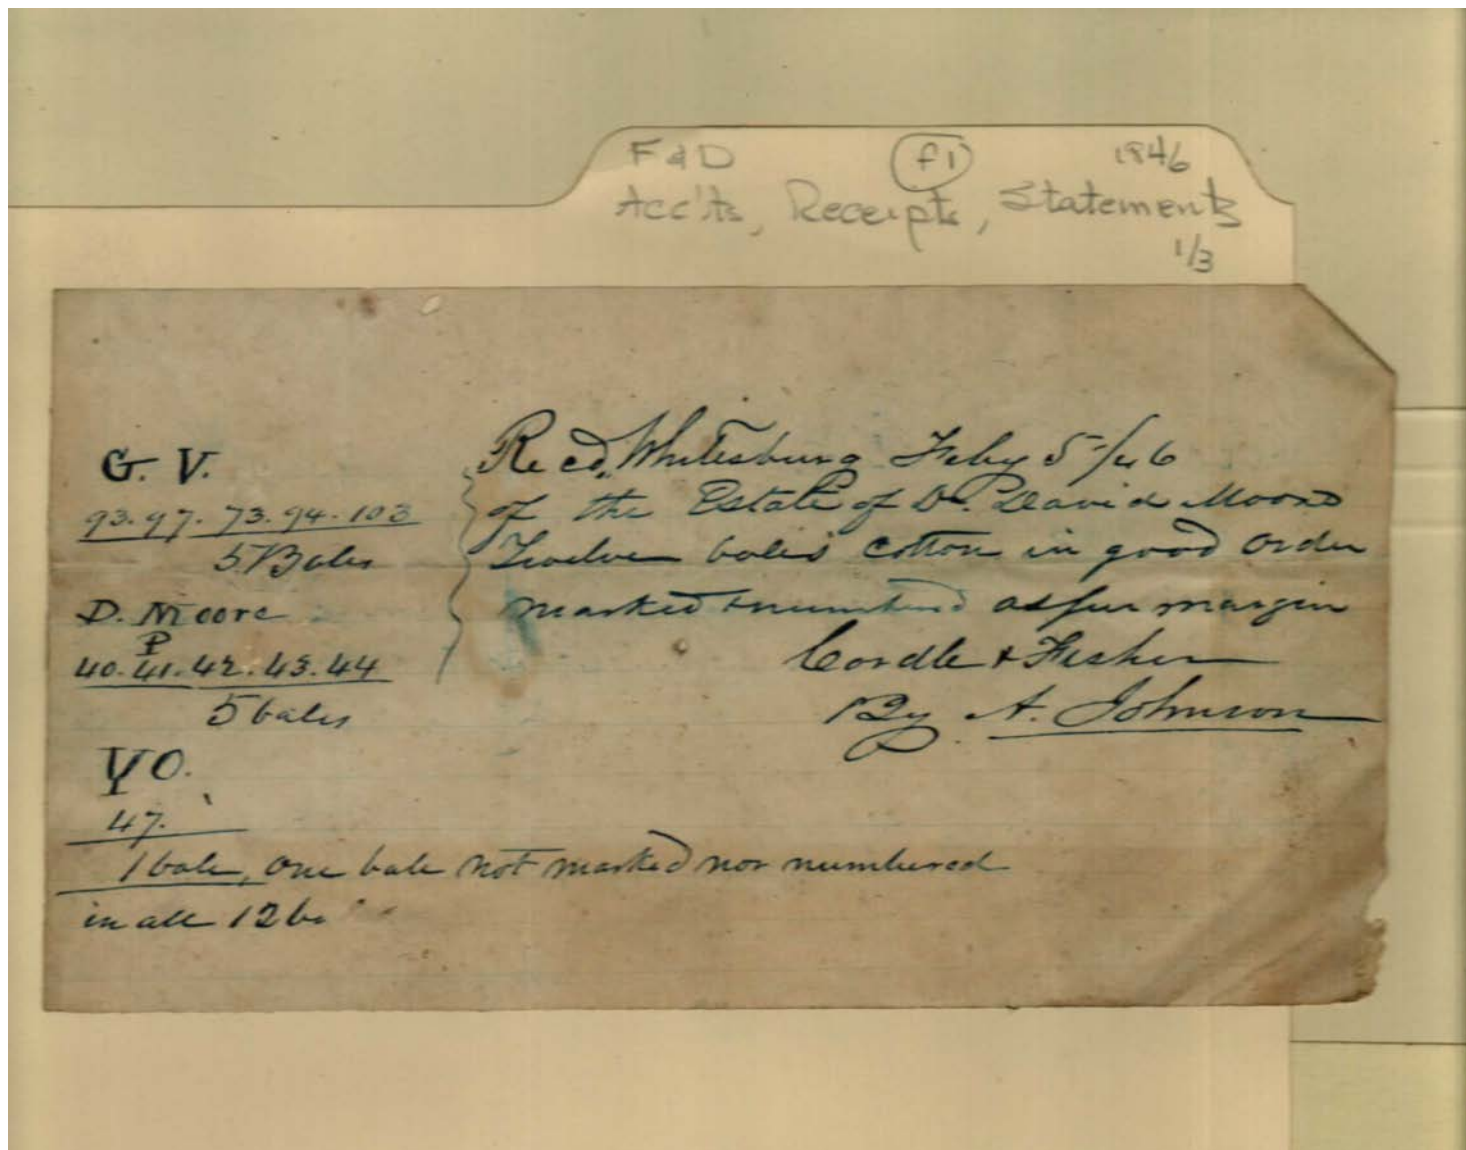 F & D (f1) 1846
Acc'ts, Receipts, Statements
1/3
G. V.
93. 97. 73. 94. 103
5 Bales
D. Moore
P
40. 41. 42. 43. 44
5 bales
VO.
47.
1 bale, one bale not marked nor numbered
in all 12 ba
Recd, Whitesburg Feby 5/46
of the Estate of Dr. David Moore
Twelve bales cotton in good order
marked & numberd as per margin
Cordle & Fisher
By A. Johnson